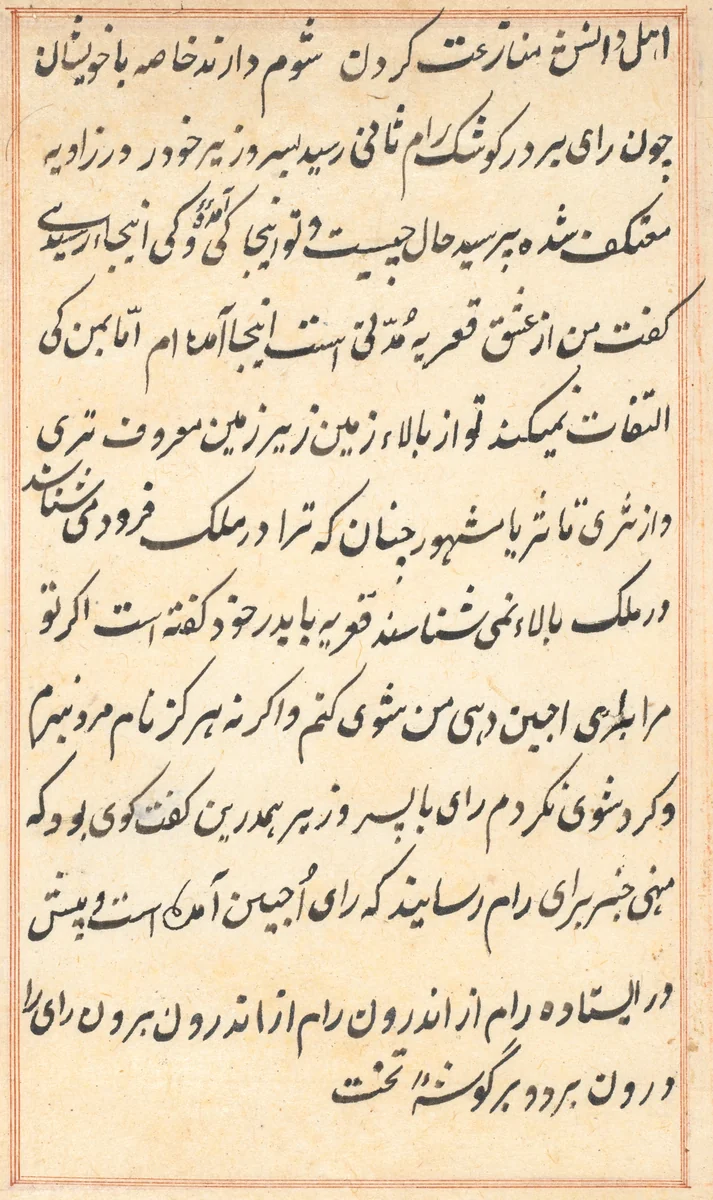 اهل دانش منازعت کردن شوم دارند خاصه با خویشان
چون رای بر در کوشک رام ثانی رسید پسر وزیر خود در زاویه
معتکف شده پرسید حال چیست و تو اینجا کی آمدهٔ و کی اینجا رسیدی
گفت من از عشق قعریه مُدّتی است اینجا آمده ام امّا بمن کی
التفات نمیکند تو از بالاء زمین زیر زمین معروف تری
و از ثری تا ثریا مشهور چنان که ترا در ملک فرود می شناسند
در ملک بالاء نمی شناسند قعریه با پدر خود کفته است اکر تو
مرا برای اجین دهی من شوی کنم و اکر نه هرکز نام مرد نبرم
و کرد شوی نکردم رای با پسر وزیر همدرین کفت کوی بود که
منهی خبر برای رام رسانیند که رای اُجین آمده است و پیش
در ایستاده رام از اندرون رام از اندرون برون رای را
درون برد و بر گوشهٔ تخت